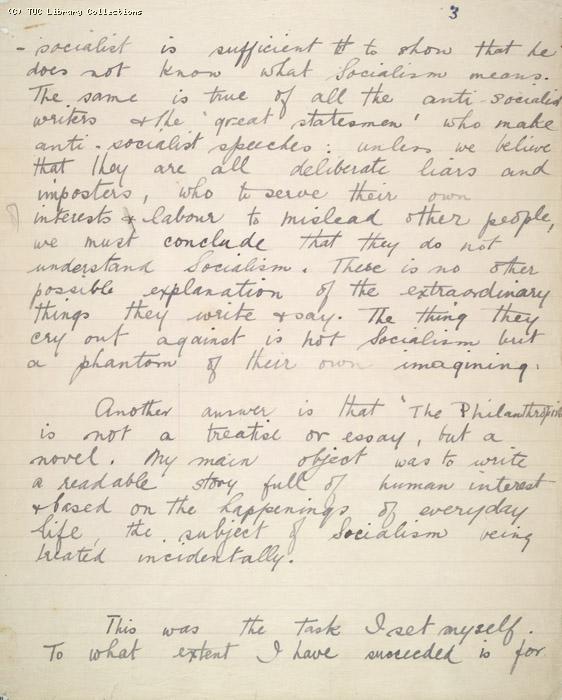 (C) TUC Library Collections
3
- socialist is sufficient tt to show that he
does not know what Socialism means.
The same is true of all the anti-socialist
writers & the 'great statesmen' who make
anti-socialist speeches: unless we belive
that they are all deliberate liars and
imposters, who to serve their own
interests & labour to mislead other people,
we must conclude that they do not
understand Socialism. There is no other
possible explanation of the extraordinary
things they write & say. The thing they
cry out against is not Socialism but
a phantom of their own imagining.
Another answer is that 'The Philanthropists
is not a treatise or essay, but a
novel. My main object was to write
a readable story full of human interest
& based on the happenings of everyday
life, the subject of Socialism being
treated incidentally.
This was the task I set myself.
To what extent I have succeeded is for